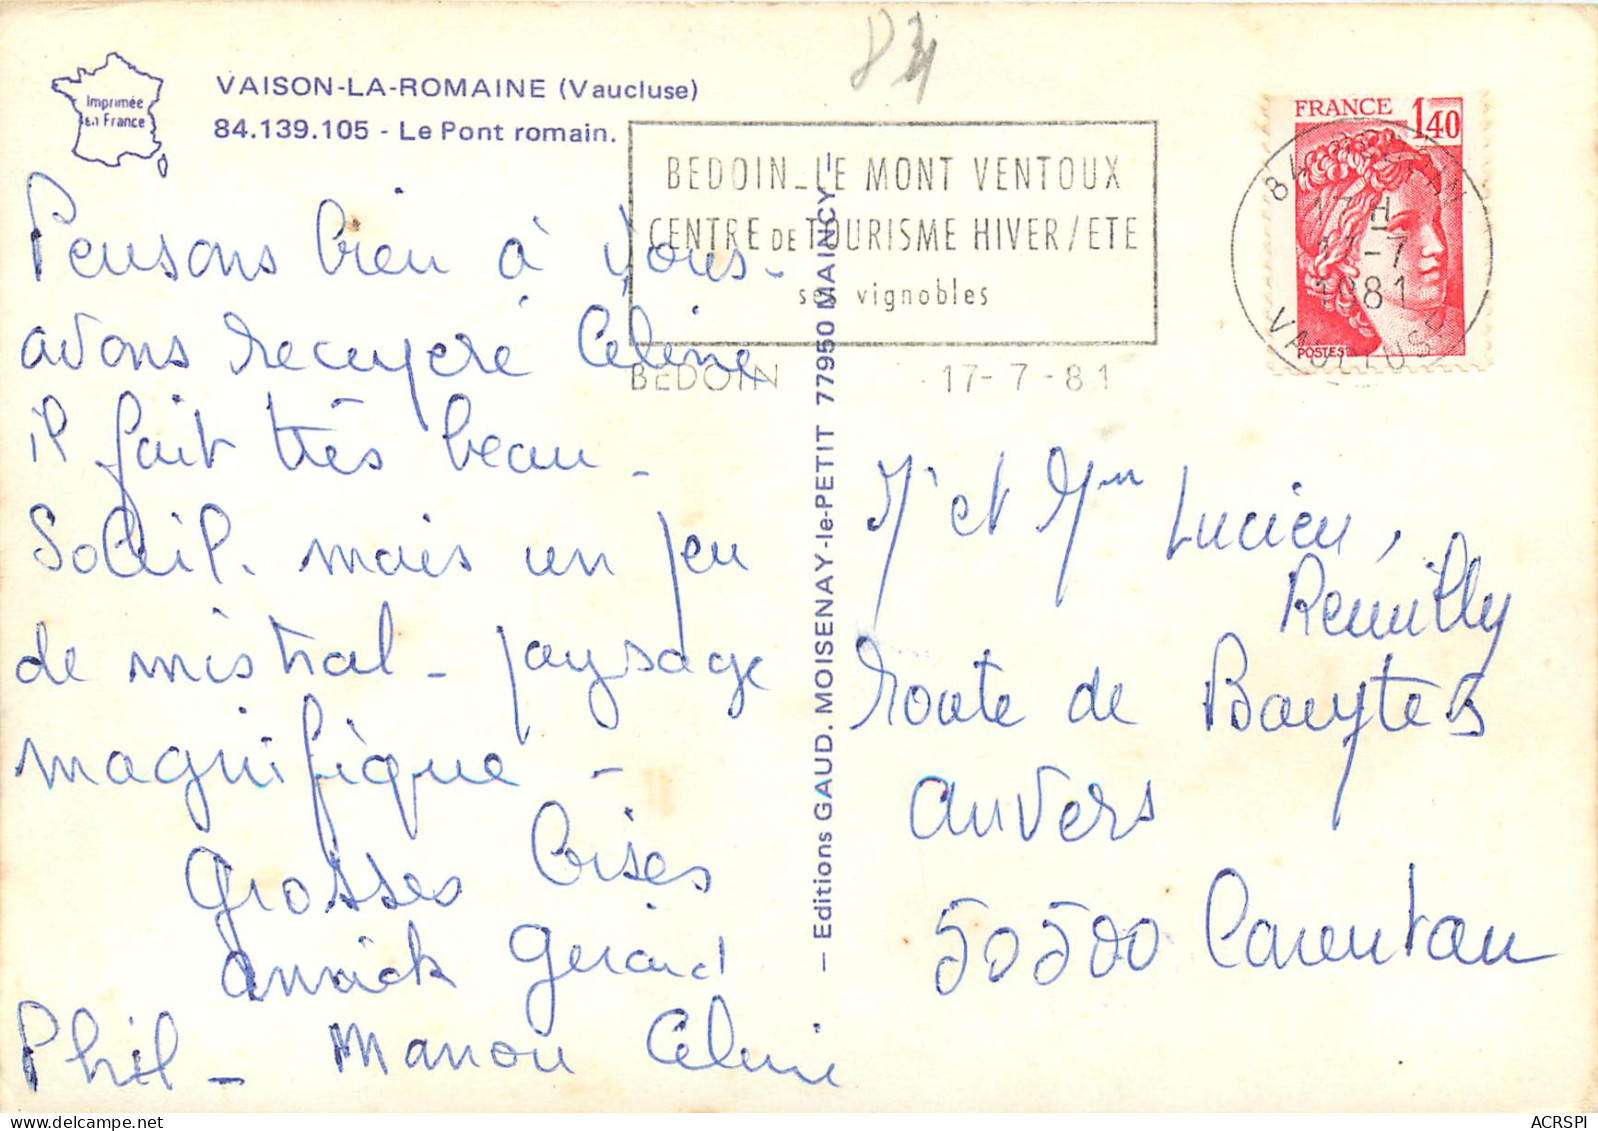 84
Imprimée
en France
VAISON-LA-ROMAINE (Vaucluse)
84.139.105 - Le Pont romain.
BEDOIN_LE MONT VENTOUX
CENTRE DE TOURISME HIVER/ETE
ses vignobles
BEDOIN 17-7-81
FRANCE 1,40
POSTES
84 BEDOIN
17 H
17-7
1981
VAUCLUSE
Pensons bien à vous -
avons recupéré Céline
il fait très beau -
Soleil. mais un peu
de mistral - paysage
magnifique -
Grosses Bises
Annick Gerard
Phil - Manou Céline
— Editions GAUD. MOISENAY-le-PETIT 77950 MAINCY —
Mr et Mme Lucien,
Remilly
route de
Auvers
50500 Carentan
ACRSPI